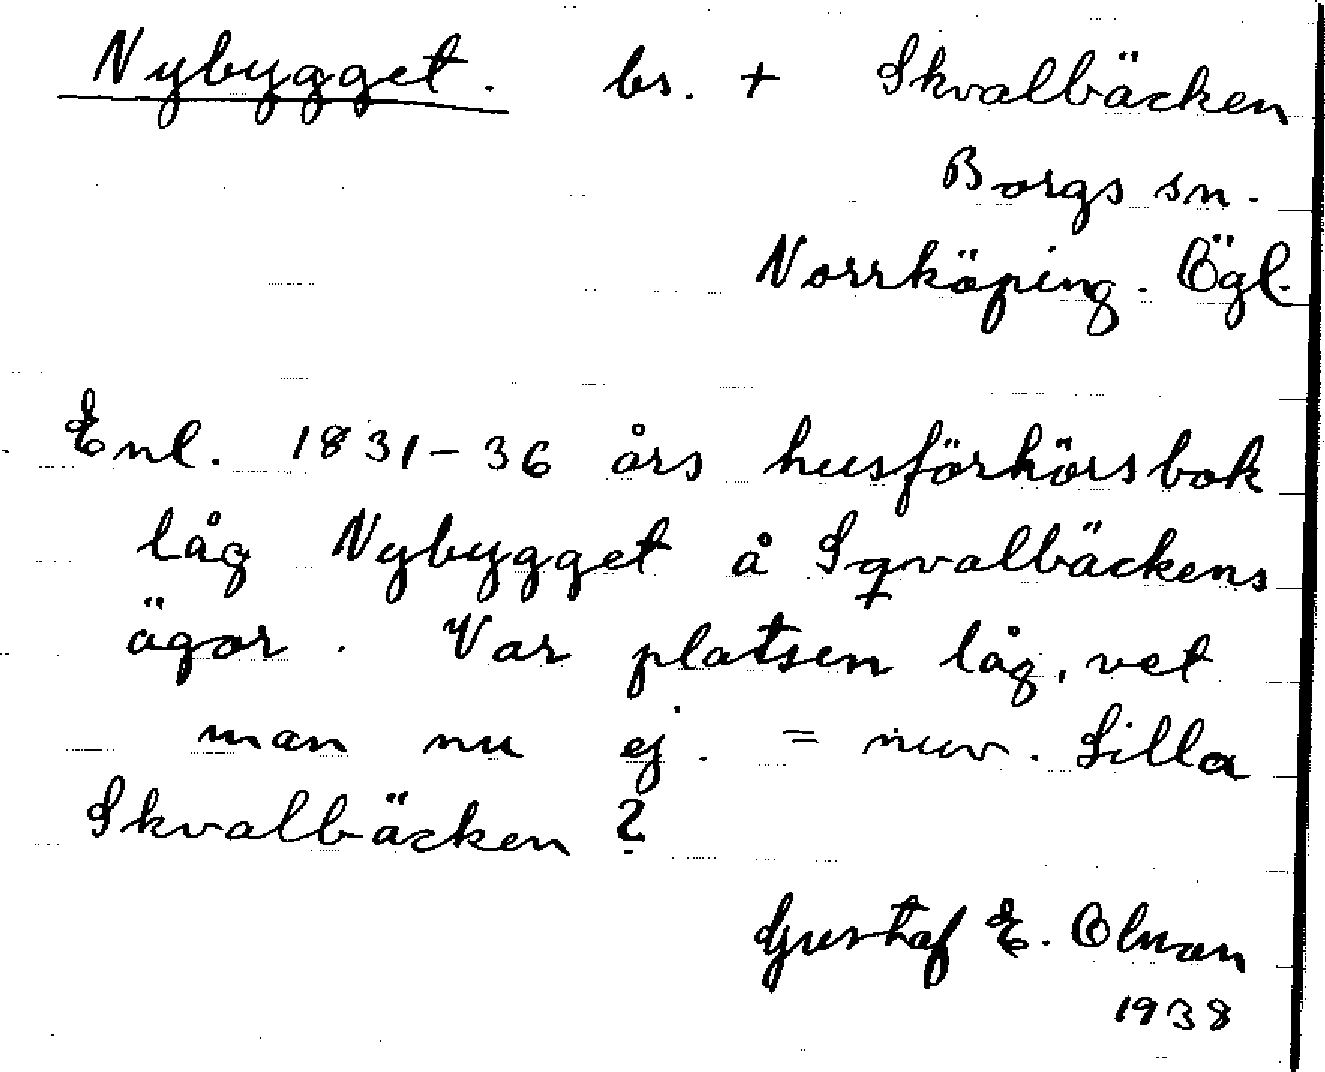 Nybygget. bs. + Skvalbäcken
Borgs sn.
Norrköping. Ögl.
Enl. 1831-36 års husförhörsbok
låg Nybygget å Sqvalbäckens
ägor. Var platsen låg, vet
man nu ej. = nuv. Lilla
Skvalbäcken?
Gustaf E. Olman
1938